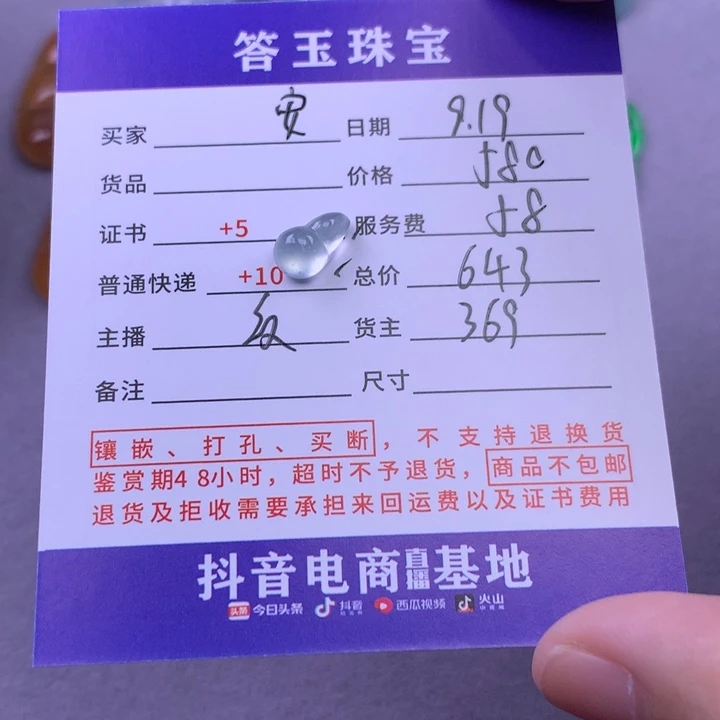 答玉珠宝
买家 安 日期 9.19
货品 价格 580
证书 +5 服务费 58
普通快递 +10 总价 643
主播 货主 369
备注 尺寸
镶嵌、打孔、买断，不支持退换货
鉴赏期48小时，超时不予退货，商品不包邮
退货及拒收需要承担来回运费以及证书费用
抖音电商直播基地
头条 今日头条 抖音 西瓜视频 火山